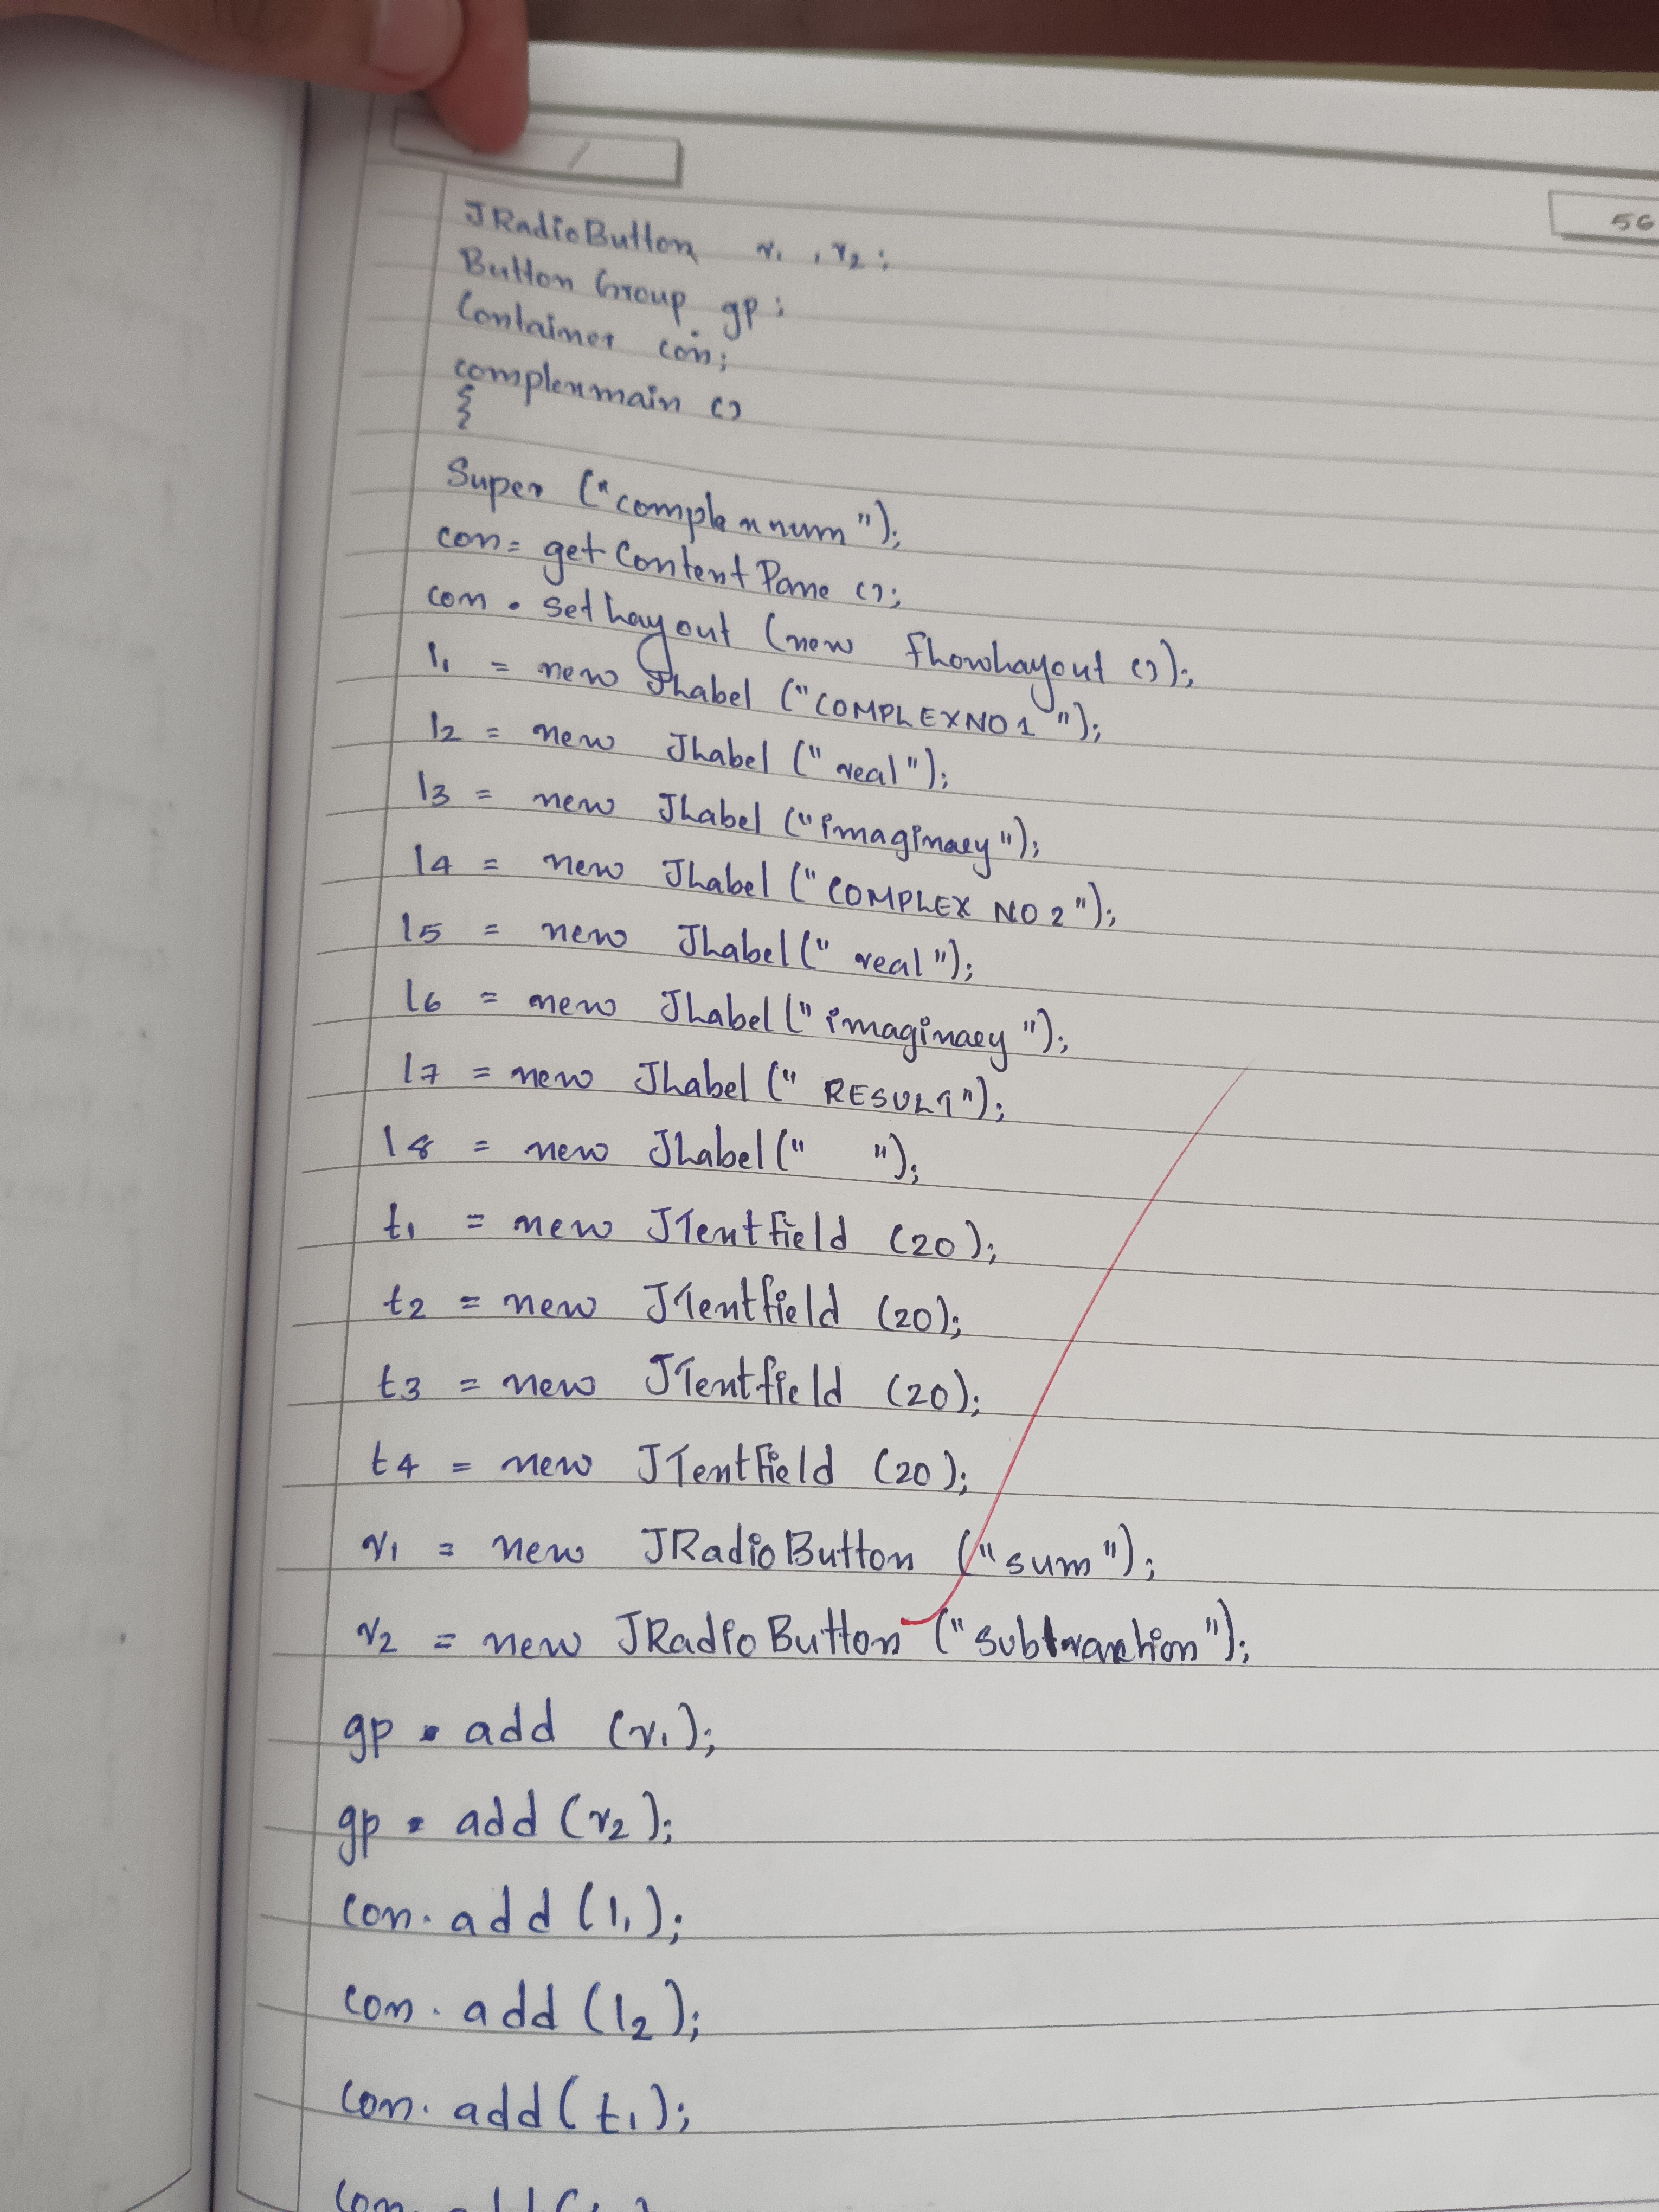 56
JRadioButton r1, r2;
Button Group gp;
Container con;
complexmain ()
{
Super ("complexnum");
con= getContentPane ();
con . setLayout (new flowLayout ());
l1 = new JLabel ("COMPLEXNO1");
l2 = new JLabel ("real");
l3 = new JLabel ("imaginaey");
l4 = new JLabel ("COMPLEX NO2");
l5 = new JLabel (" real");
l6 = new JLabel ("imaginaey");
l7 = new JLabel (" RESULT");
l8 = new JLabel (" ");
t1 = new JTextfield (20);
t2 = new JTextfield (20);
t3 = new JTextfield (20);
t4 = new JTextField (20);
r1 = new JRadioButton ("sum");
r2 = new JRadioButton ("subtraction");
gp . add (r1);
gp . add (r2);
con. add (l1);
con. add (l2);
con. add (t1);